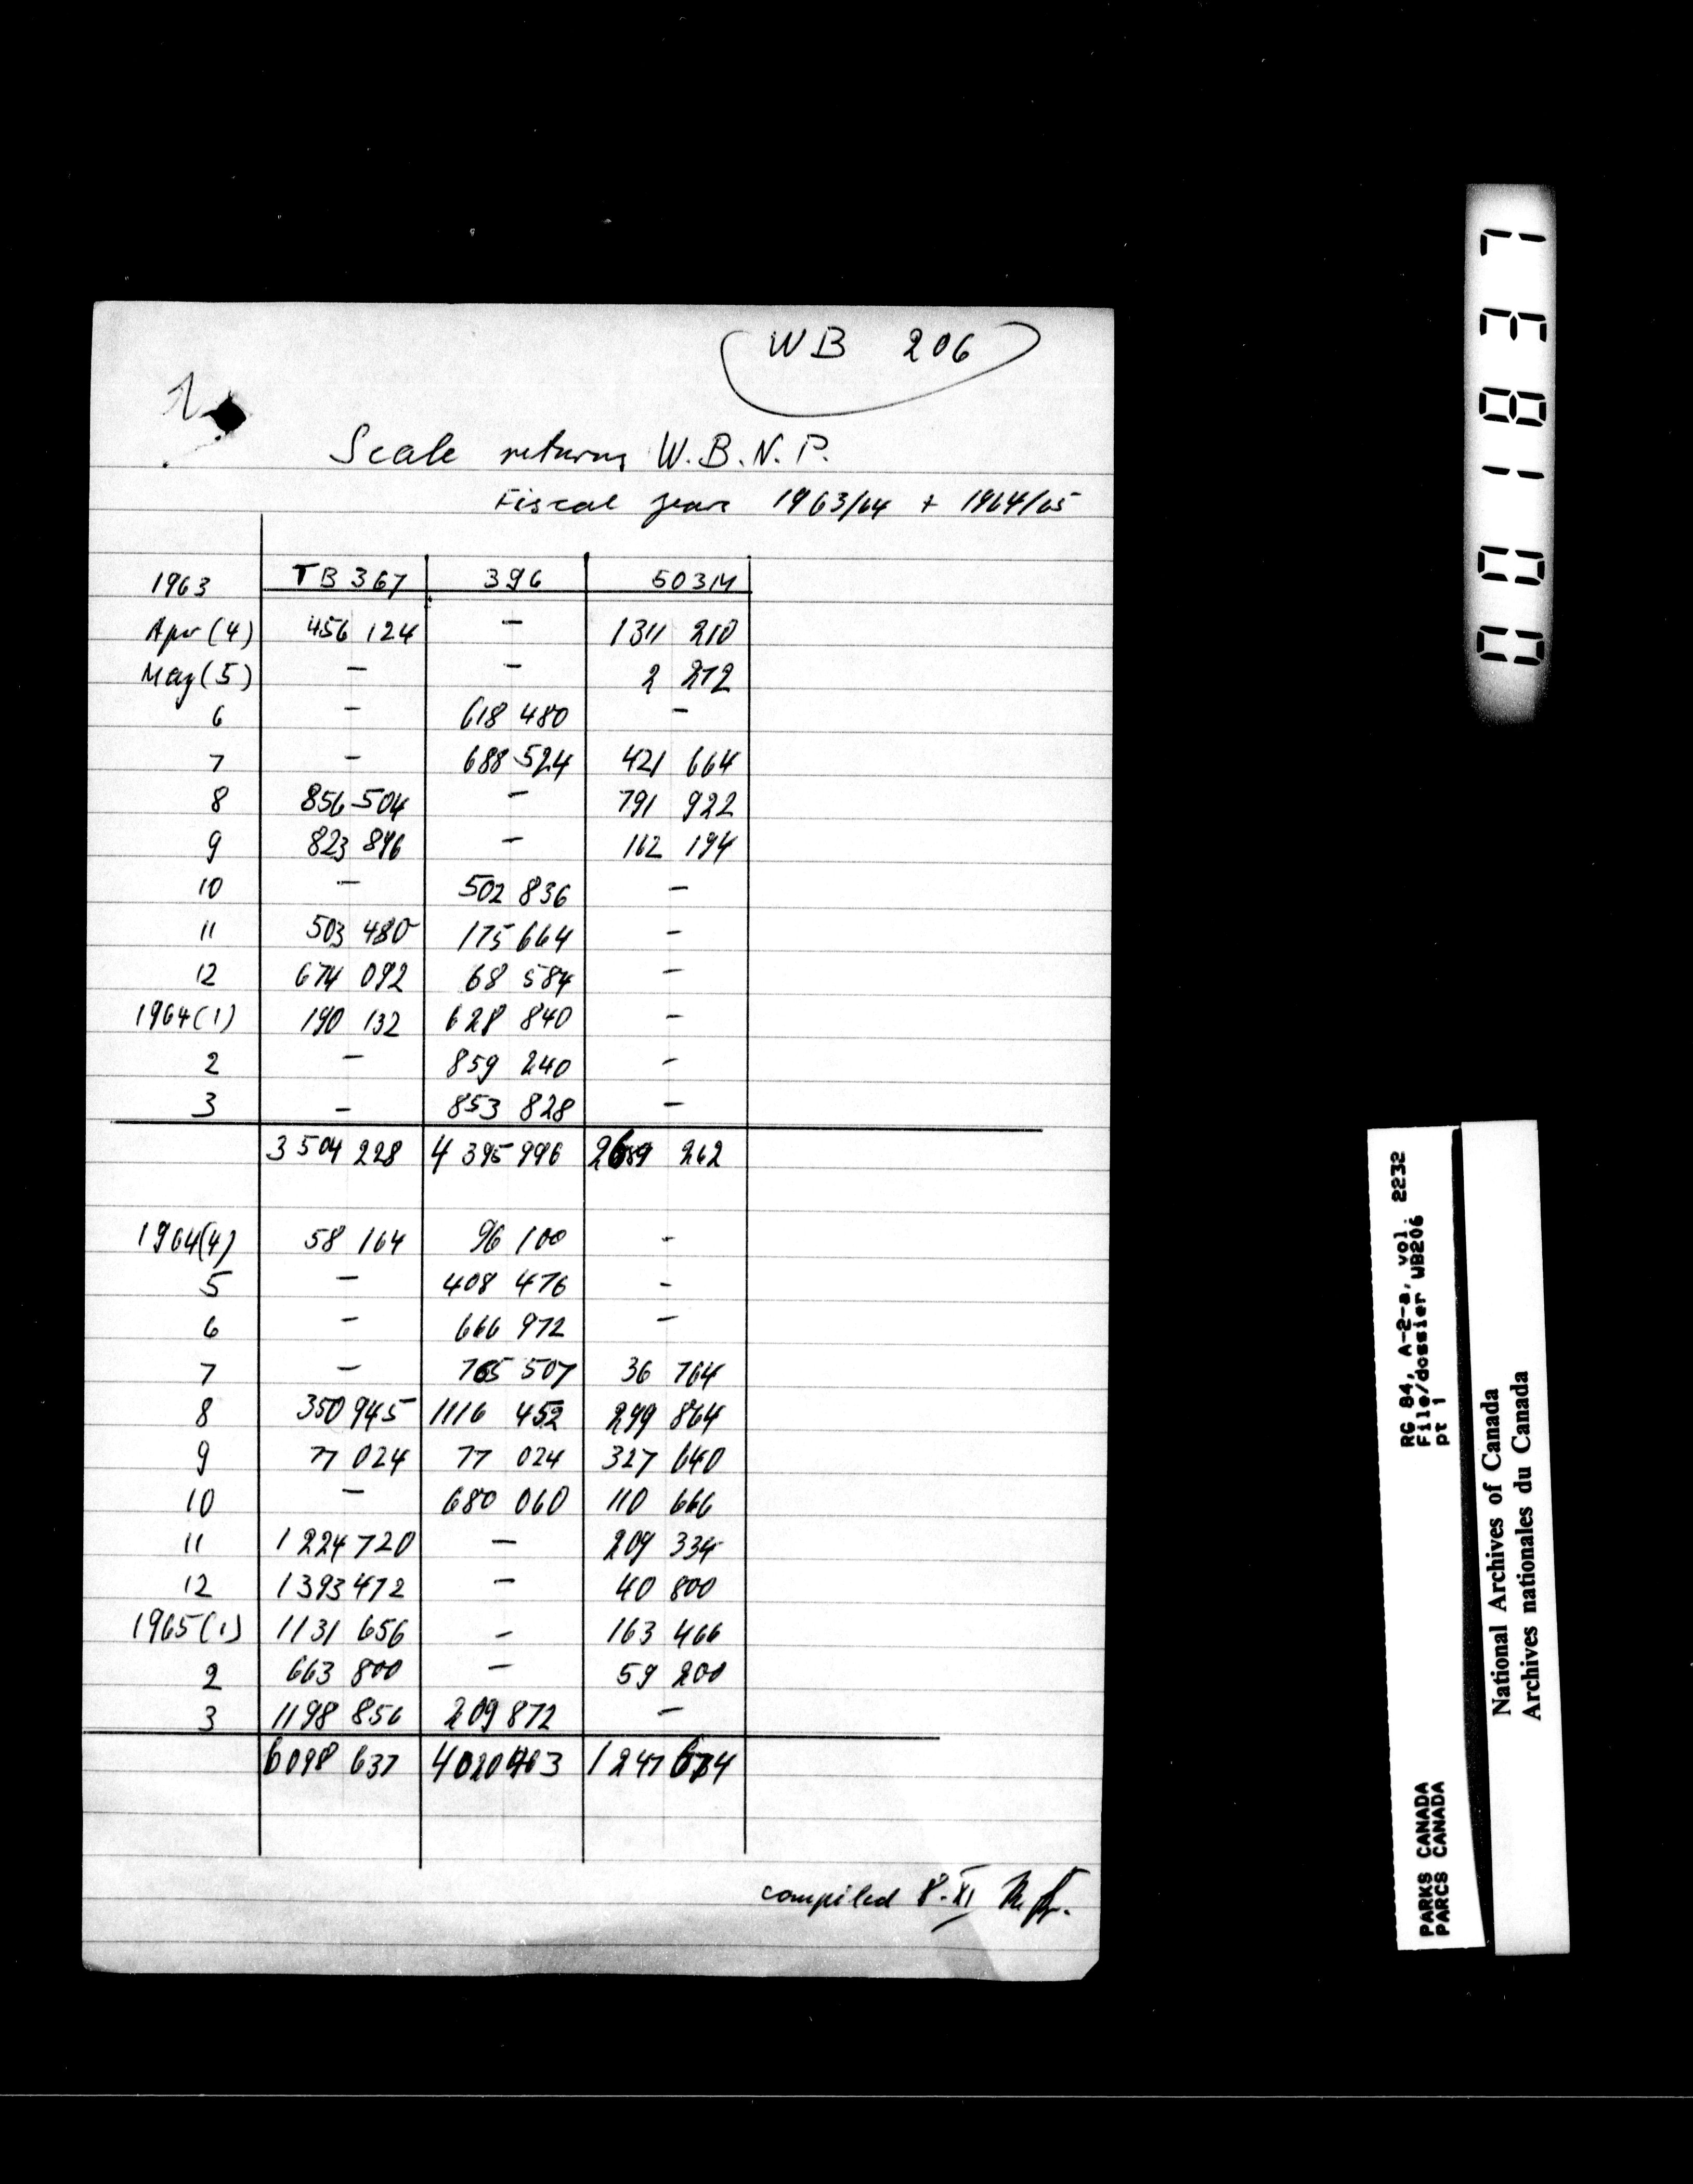 WB 206
Scale returns W.B.N.P.
Fiscal year 1963/64 + 1964/65
1963 TB 367 396 503M
Apr (4) 456 124 – 1311 210
May (5) – – 2 272
6 – 618 480 –
7 – 688 524 421 664
8 856 504 – 791 922
9 823 896 – 162 194
10 – 502 836 –
11 503 480 175 664 –
12 674 092 68 584 –
1964 (1) 190 132 628 840 –
2 – 859 240 –
3 – 853 828 –
3 504 228 4 395 996 2689 262
1964 (4) 58 164 96 100 –
5 – 408 476 –
6 – 666 972 –
7 – 765 507 36 764
8 350 945 1116 452 299 864
9 77 024 77 024 327 640
10 – 680 060 110 666
11 1 224 720 – 209 334
12 1 393 472 – 40 800
1965 (1) 1131 656 – 163 466
2 663 800 – 59 200
3 1198 856 209 872 –
6098 637 4020463 1 247 674
compiled 8.XI
001837
RG 84, A-2-a, vol. 2232
File/dossier WB206
pt 1
PARKS CANADA
PARCS CANADA
National Archives of Canada
Archives nationales du Canada